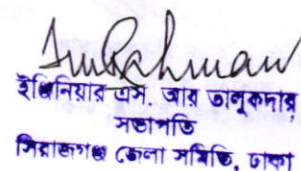 ইঞ্জিনিয়ার এস. আর তালুকদার
সভাপতি
সিরাজগঞ্জ জেলা সমিতি, ঢাকা